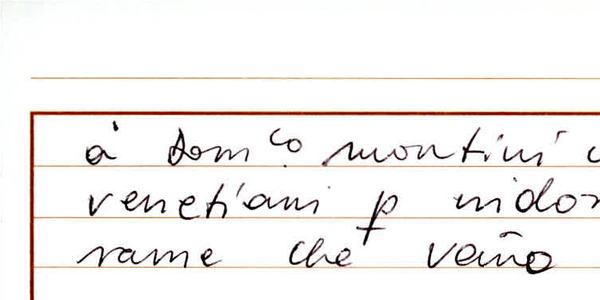 à dom^co montini
venetiani ꝑ indor
rame che vano